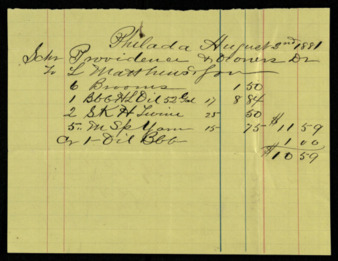 Philada August 2nd 1881
Schr Providence & Owners Dr
To L Matthews & Son
6 Brooms 1 50
1 Bbl H L Oil 52 Gal 17 8 84
2 SK H Twine 25 50
5 m Sp Yarn 15 75 $11 59
Cr 1 Oil Bbl 1 00
$10 59